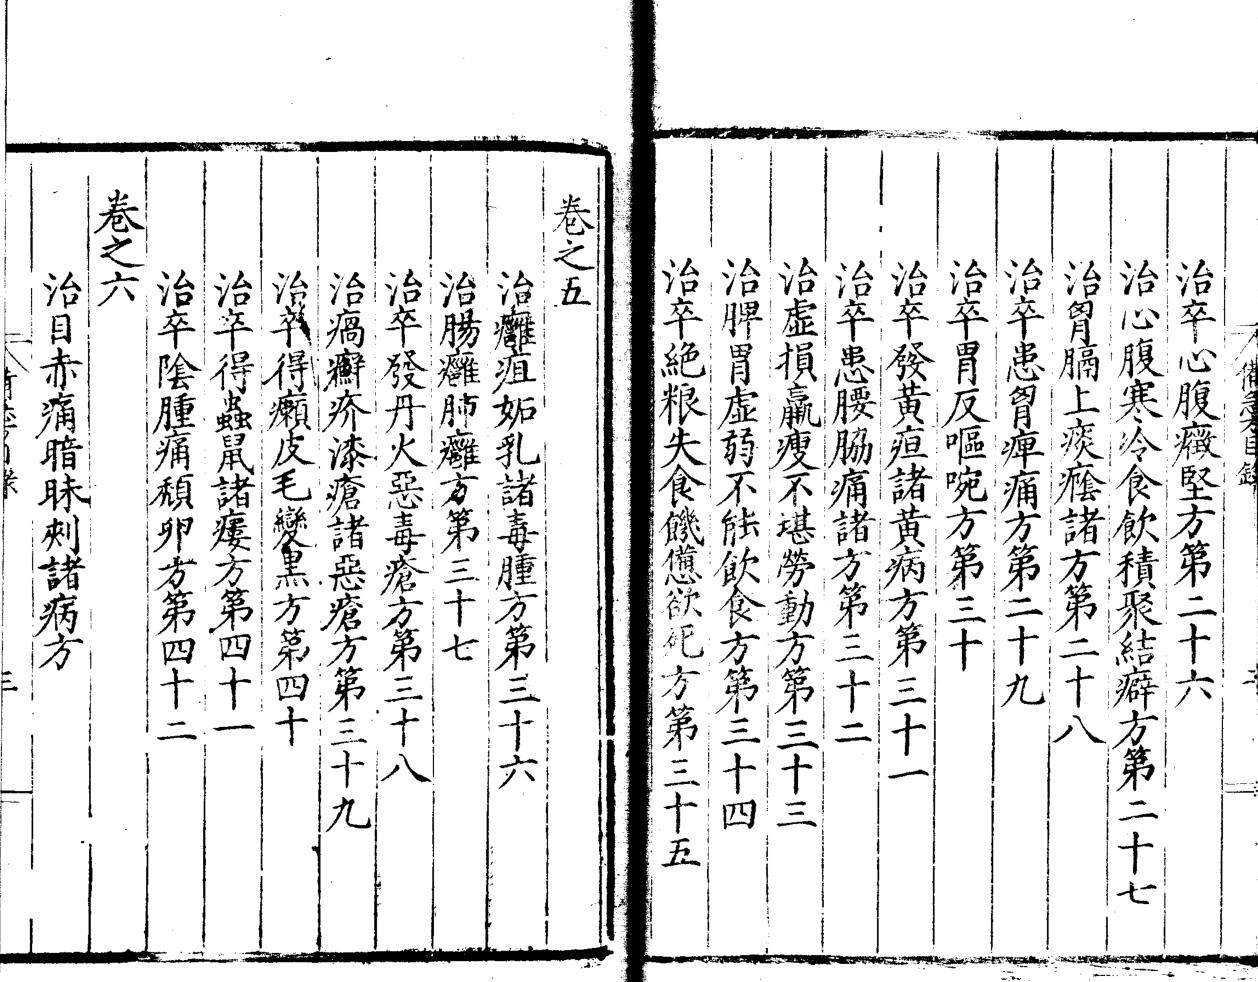 治卒心腹癥堅方第二十六
治心腹寒冷食飲積聚結癖方第二十七
治胷膈上痰癊諸方第二十八
治卒患胷痺痛方第二十九
治卒胃反嘔啘方第三十
治卒發黃疸諸黃病方第三十一
治卒患腰脇痛諸方第三十二
治虛損羸瘦不堪勞動方第三十三
治脾胃虛弱不能飲食方第三十四
治卒絶粮失食饑憊欲死方第三十五
卷之五
治癰疽妬乳諸毒腫方第三十六
治腸癰肺癰方第三十七
治卒發丹火惡毒瘡方第三十八
治瘑癬疥漆瘡諸惡瘡方第三十九
治卒得癩皮毛變黒方第四十
治卒得蟲鼠諸瘻方第四十一
治卒陰腫痛頹卵方第四十二
卷之六
治目赤痛暗昧刺諸病方
三